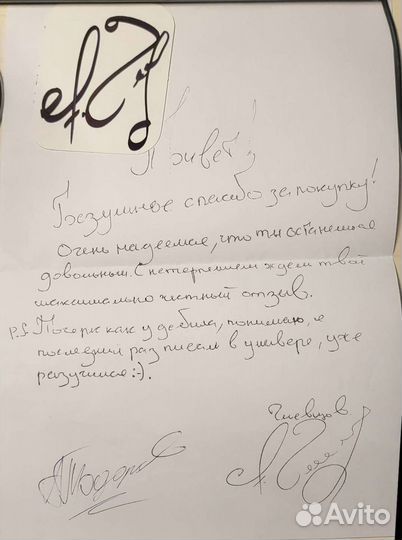 Привет!
Безумное спасибо за покупку!
Очень надеемся, что ты останешься
довольным. С нетерпением ждем твой
максимально честный отзыв.
p.s Почерк как у дебила, понимаю, я
последний раз писал в универе, уже
разучился :).
Avito